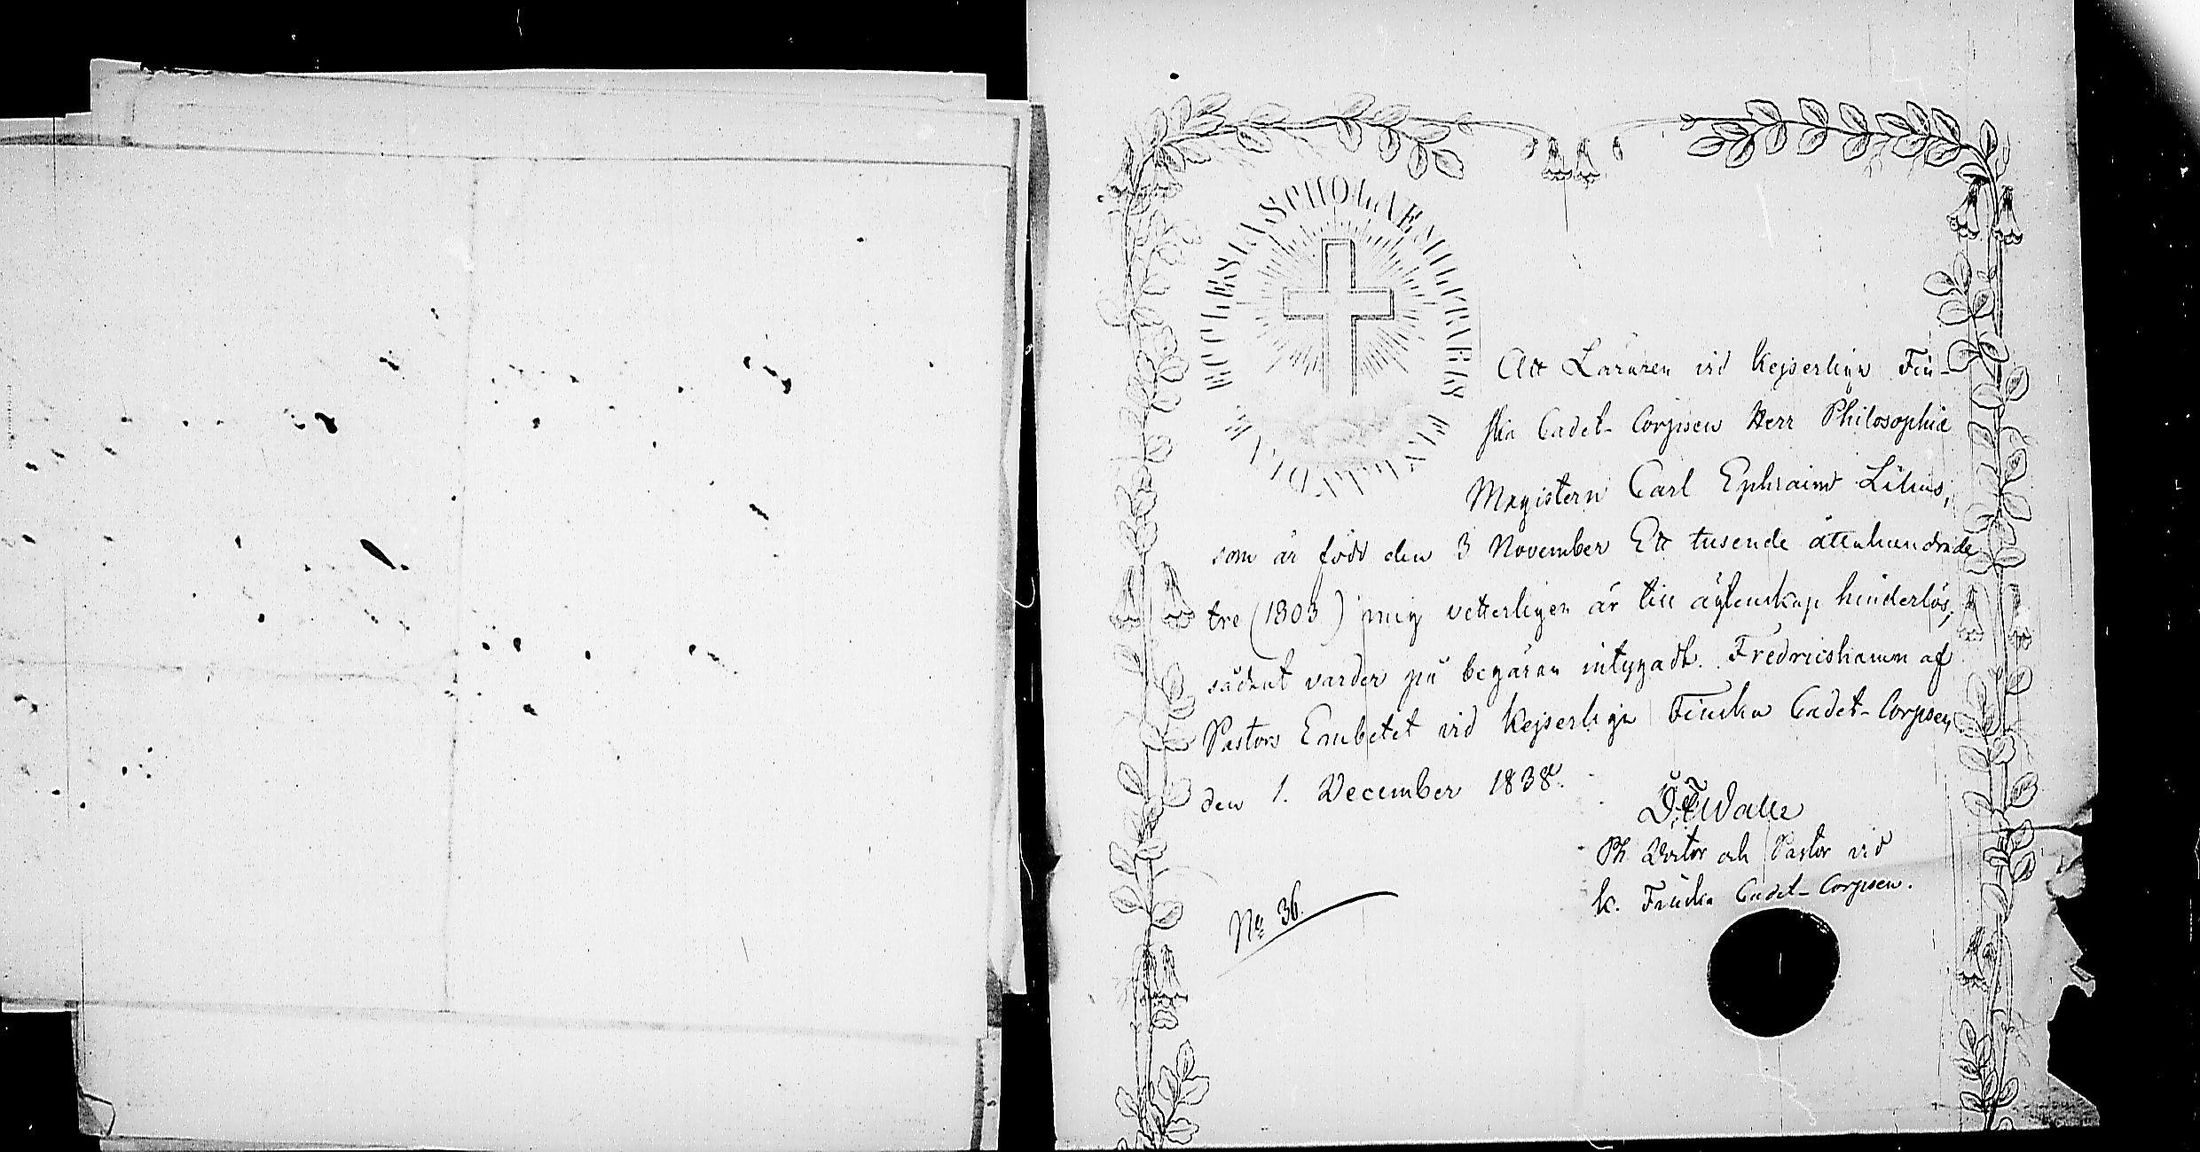 ECCLESIA SCHOLAE MILITARIS FINLANDIAE
Att Läraren vid Kejserliga Fin-
ska Cadet-Corpsen Herr Philosophiæ
Magistern Carl Ephraim Lilius,
som är född den 3 November Ett tusende åttahundrade
tre (1803) mig vetterligen är till ägtenskap hinderlös,
sådant varder på begäran intygadt. Fredricshamn af
Pastors Embetet vid Kejserliga Finska Cadet-Corpsen,
den 1. December 1838.
Walle
Ph. Doctor och Pastor vid
K. Finska Cadet-Corpsen.
No 36.